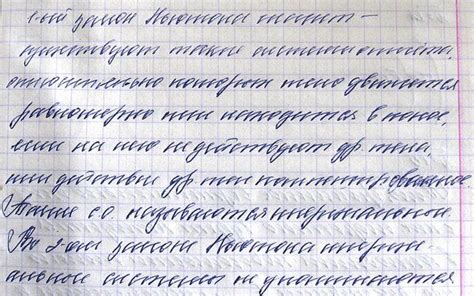 1-ый закон Ньютона гласит –
существуют такие системы отсчёта,
относительно которых тело движется
равномерно или находится в покое,
если на него не действуют др тела
или действие др тел компенсированное
Такие СО называются инерциальной.
Во 2 ом законе Ньютона инерци
альные системы не упоминаются